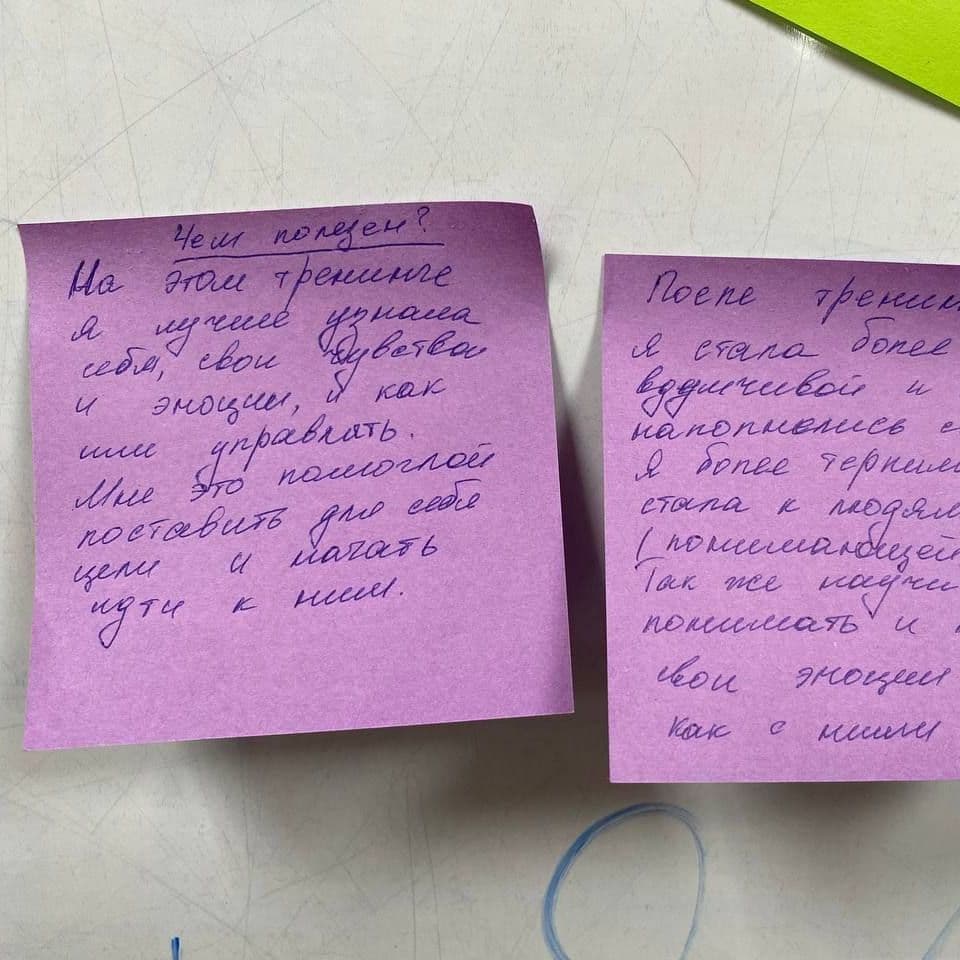 Чем полезен?
На этом тренинге
я лучше узнала
себя, свои чувства
и эмоции, и как
ими управлять.
Мне это помогло
поставить для себя
цели и начать
идти к ним.
После тренин
я стала более
вдумчивой и
наполнились с
Я более терпим
стала к людям
(понимающей
Так же научи
понимать и
свои эмоции
как с ними